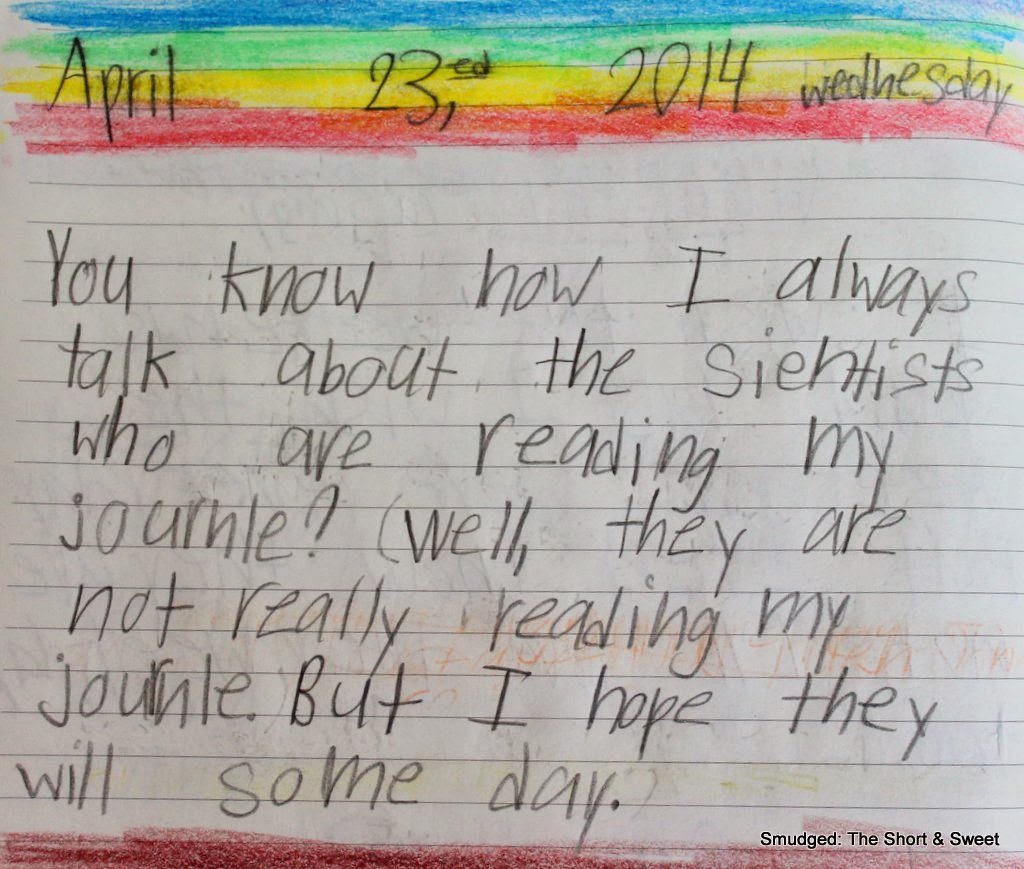 April 23,ed 2014 wednesday
You know how I always
talk about the sientists
who are reading my
journle? (Well, they are
not really reading my
journle. But I hope they
will some day.)
Smudged: The Short & Sweet